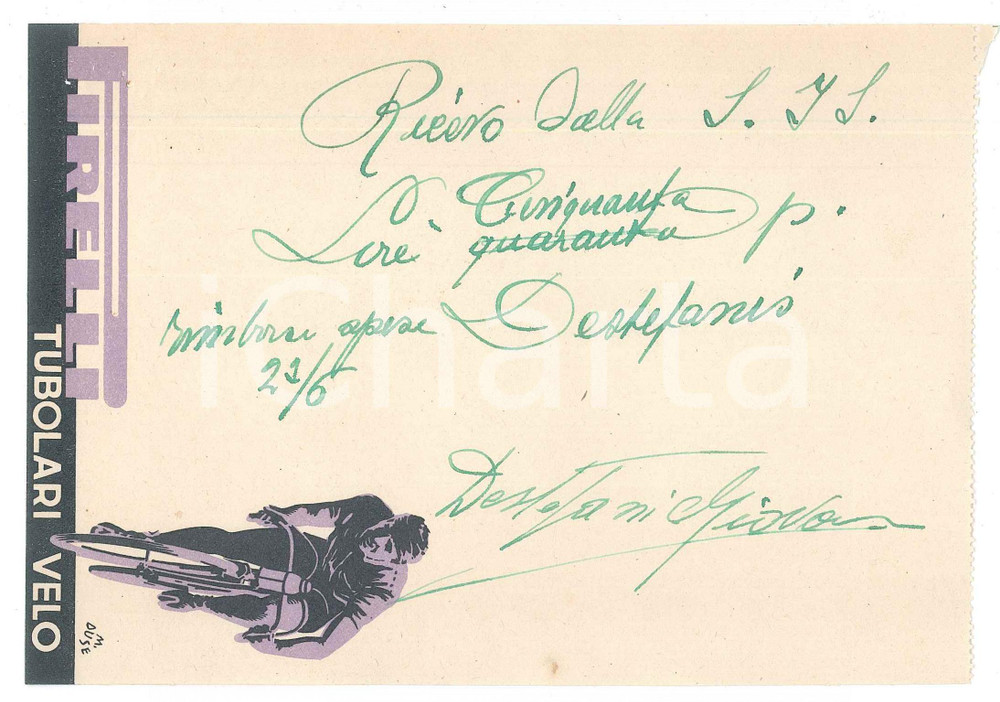 PIRELLI
TUBOLARI VELO
M. DUSE
Ricevo dalla S. I S.
Cinquanta
Lire quaranta p.
rimborso spese Destefanis
21/6
Destefani Giovan
iCharta